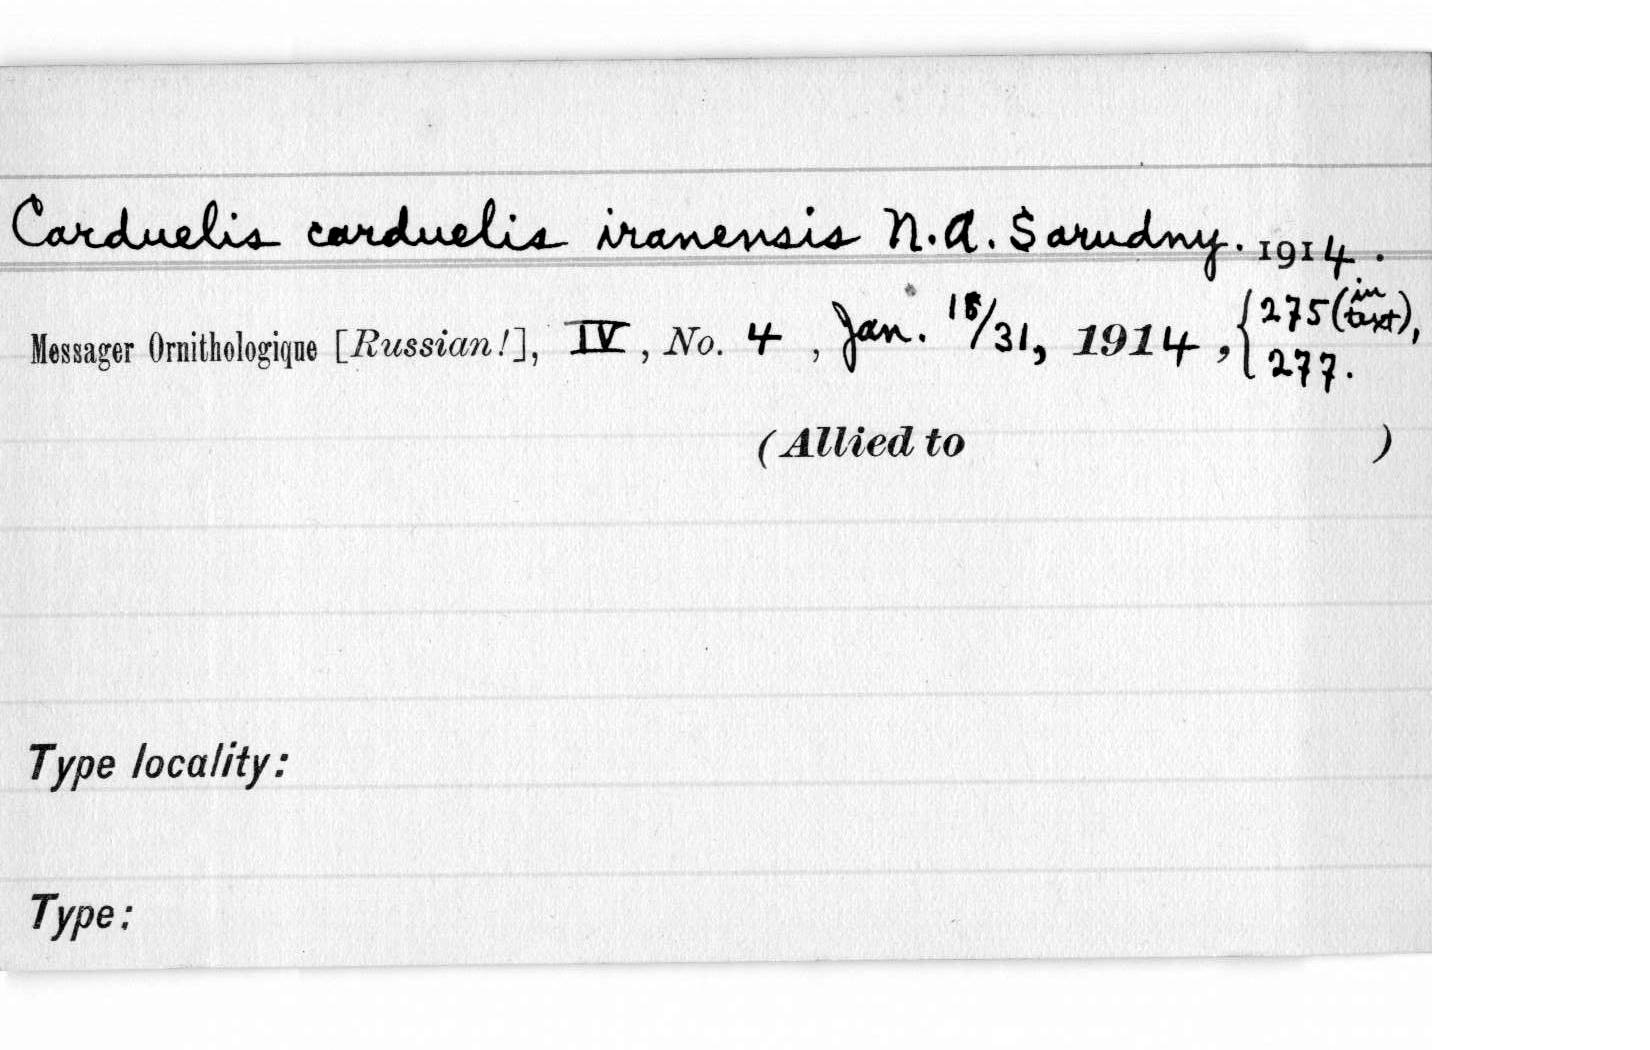 Carduelis carduelis iranensis N.A. Sarudny. 1914.
Messager Ornithologique [Russian!], IV, No. 4, Jan. 18/31, 1914, {275 (in text), 277.
(Allied to )
Type locality:
Type: